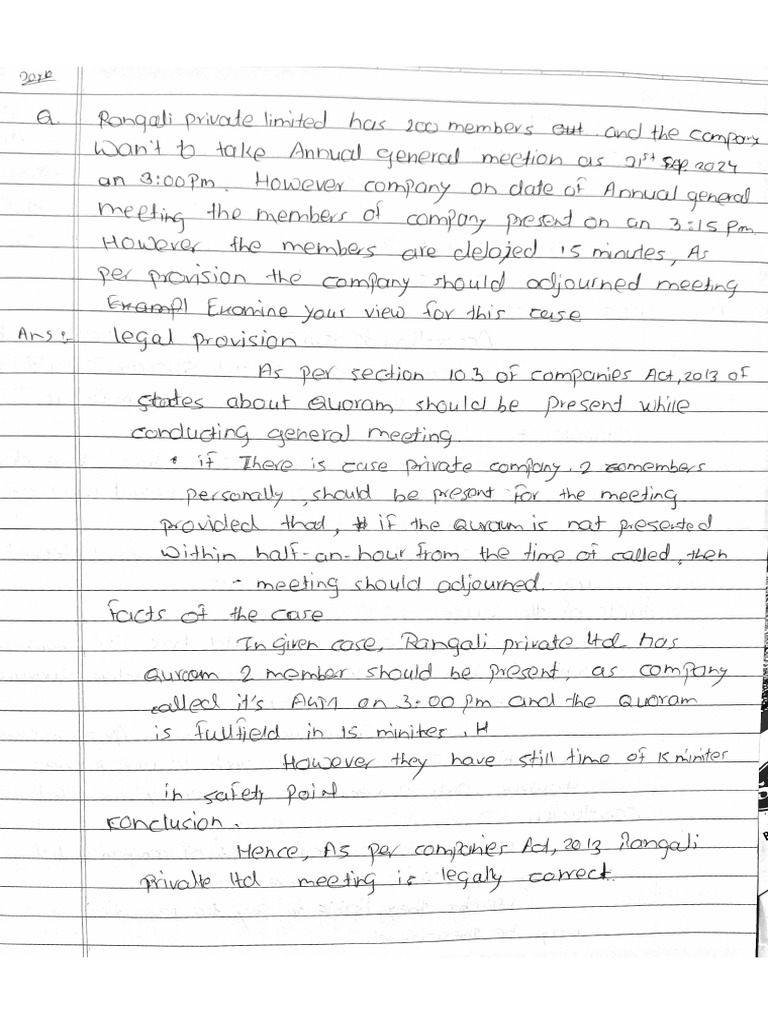 Q. Rangali private limited has 200 members out and the company
Wan't to take Annual general meetion as 21st Sep 2024
an 3:00 Pm. However company on date of Annual general
meeting the members of company present on an 3:15 Pm
However the members are delajed 15 minutes, As
per provision the company should adjourned meeting
Exampl Examine your view for this case
Ans:- legal provision
As per section 103 of companies Act, 2013 of
states about Quoram should be present while
conducting general meeting.
* if There is case private company 2 members
personally, should be present for the meeting
provided that, if the Quroum is not presented
within half-an-hour from the time of called, then
- meeting should adjourned.
facts of the case
In given case, Rangali private ltd has
Quroam 2 member should be present, as company
called it's AGM on 3:00 pm and the Quoram
is fullfield in 15 miniter, H
However they have still time of 15 miniter
in safety point
conclusion.
Hence, As per companies Act, 2013 Rangali
private ltd meeting is legally correct